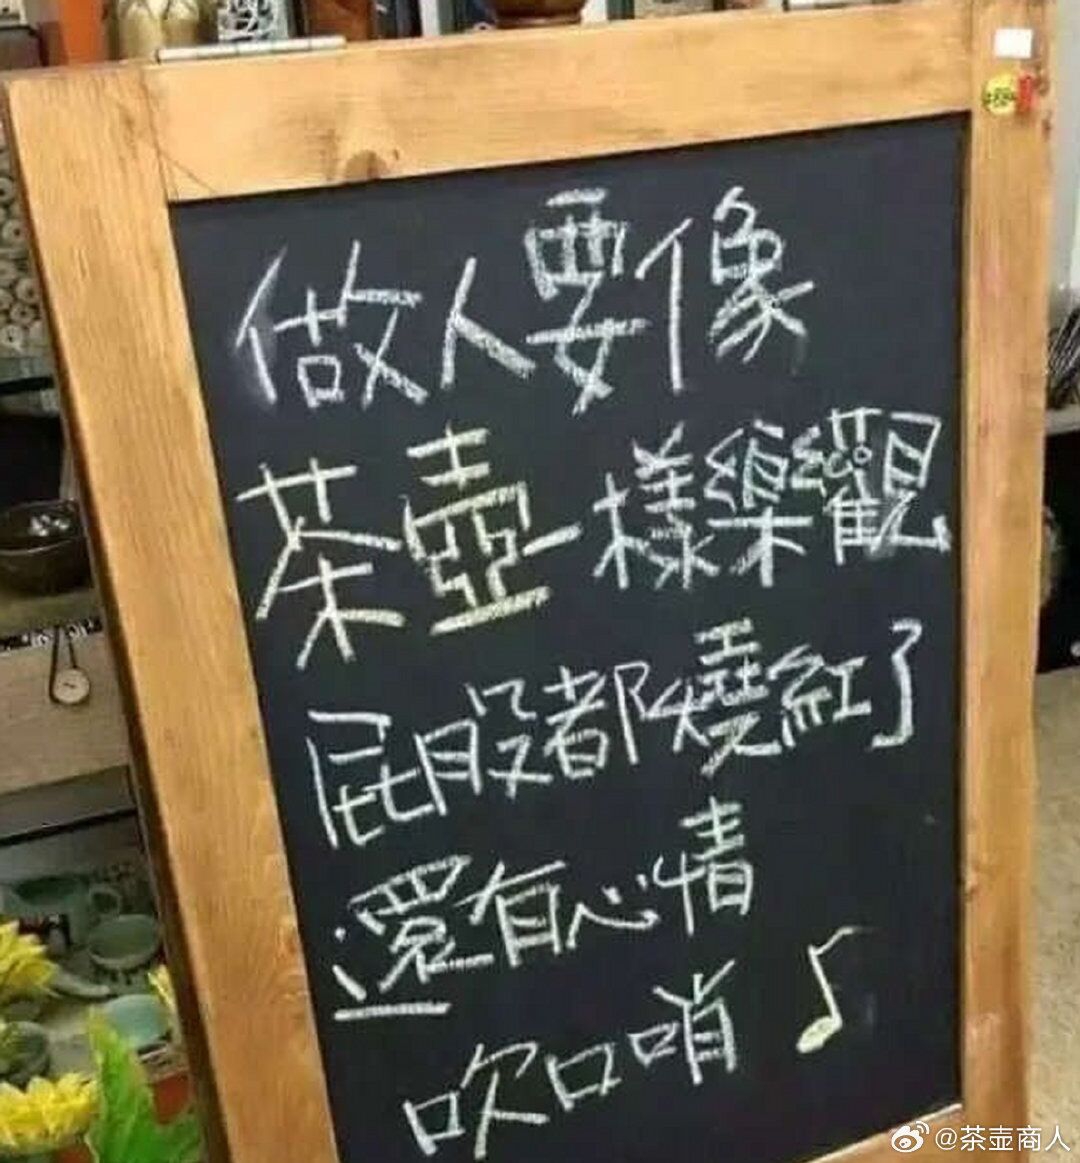 做人要像
茶壺一樣樂觀
屁股都燒紅了
還有心情
吹口哨♪
@茶壶商人